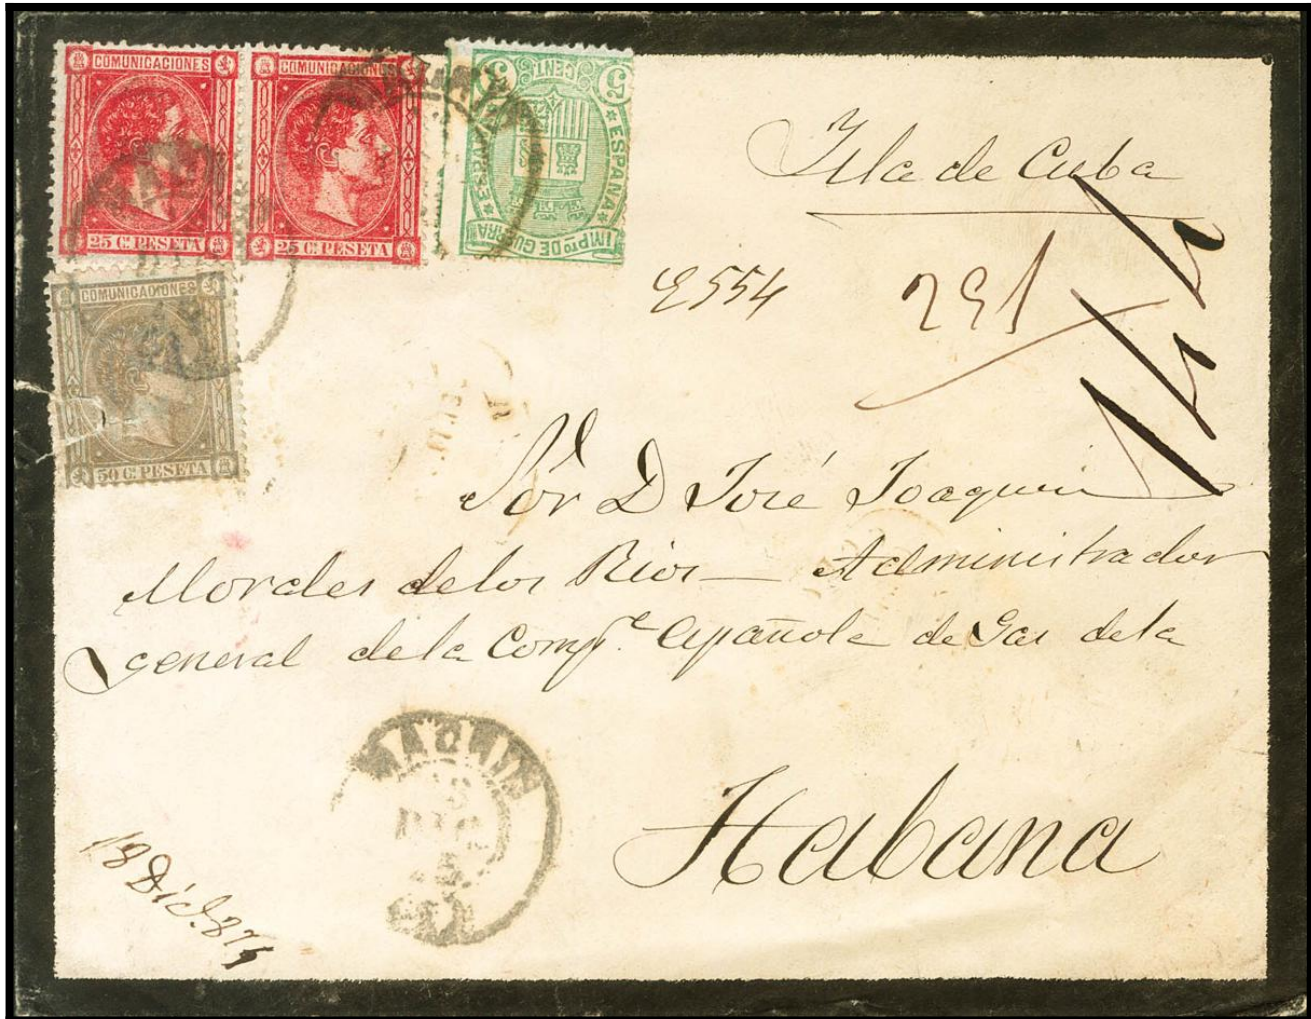 COMUNICACIONES
25 Cs. PESETA
COMUNICACIONES
25 Cs. PESETA
5 CENTs. 5
* ESPAÑA *
IMPTO. DE GUERRA
COMUNICACIONES
50 Cs. PESETA
Isla de Cuba
291
Sor. D José Joaquin
Morales de los Rios — Administrador
general de la Compa. Española de Gas de la
Habana
MADRID
DIC
75
18 Dic. 875